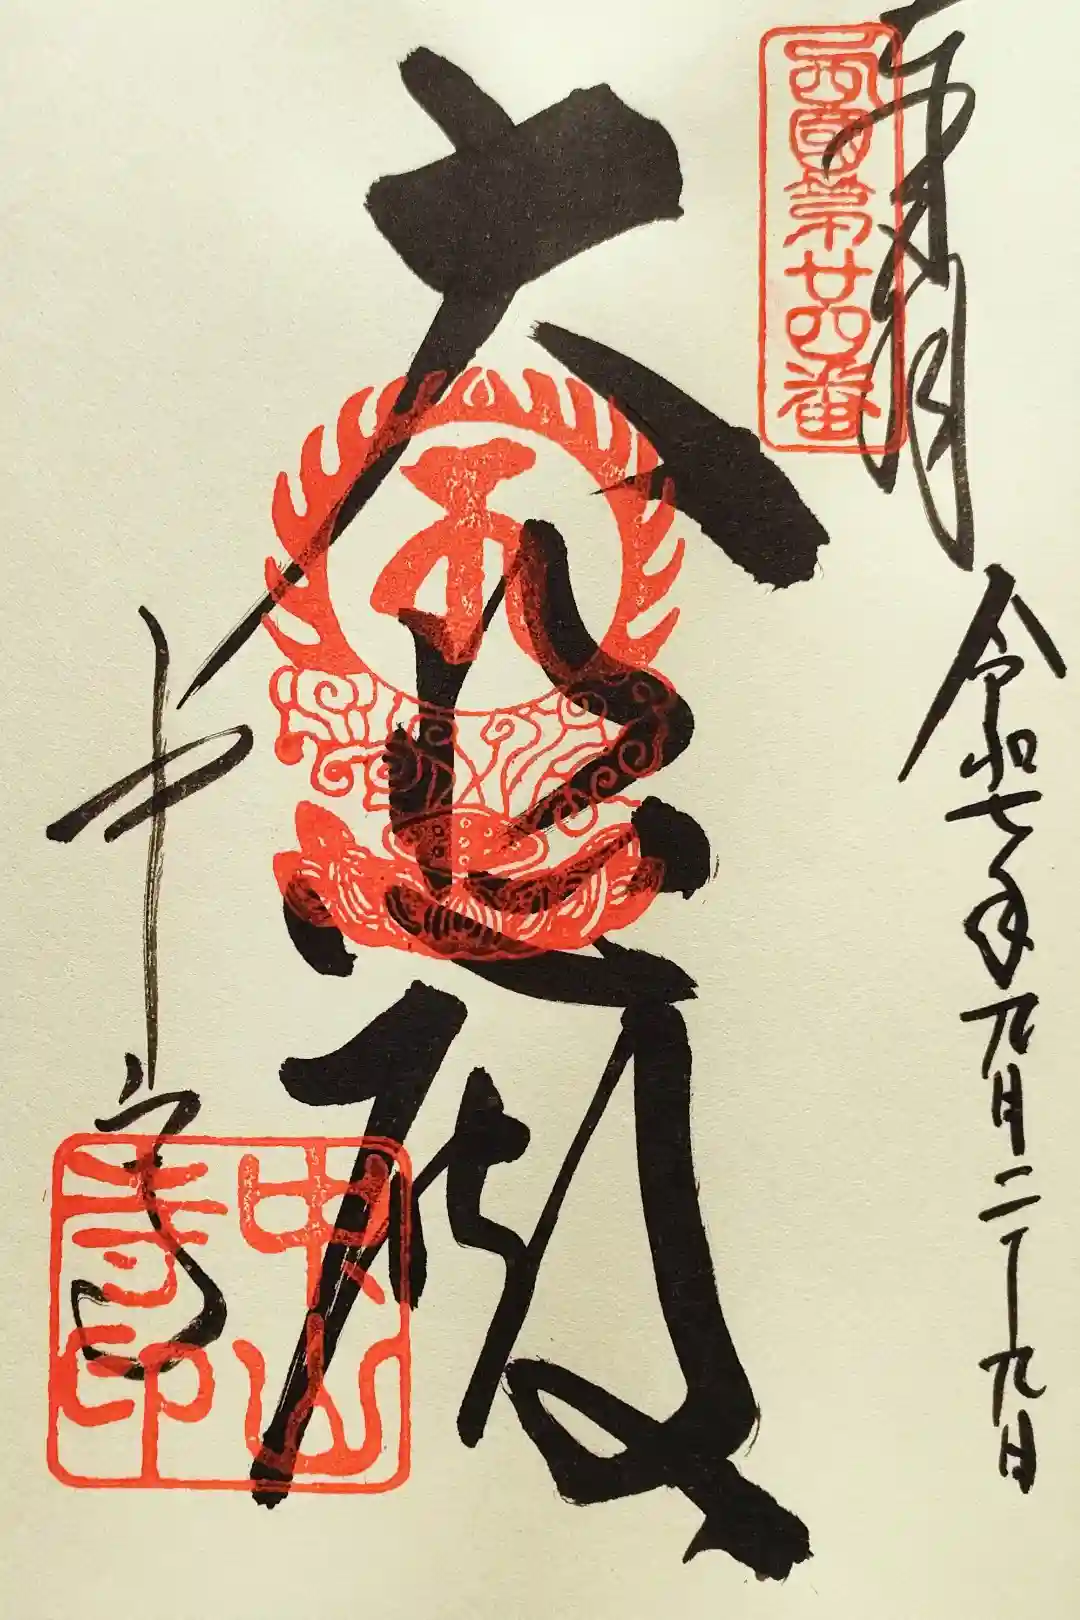 奉拝
西國第廿四番
令和七年九月二十九日
大悲殿
中山寺
中山
寺印